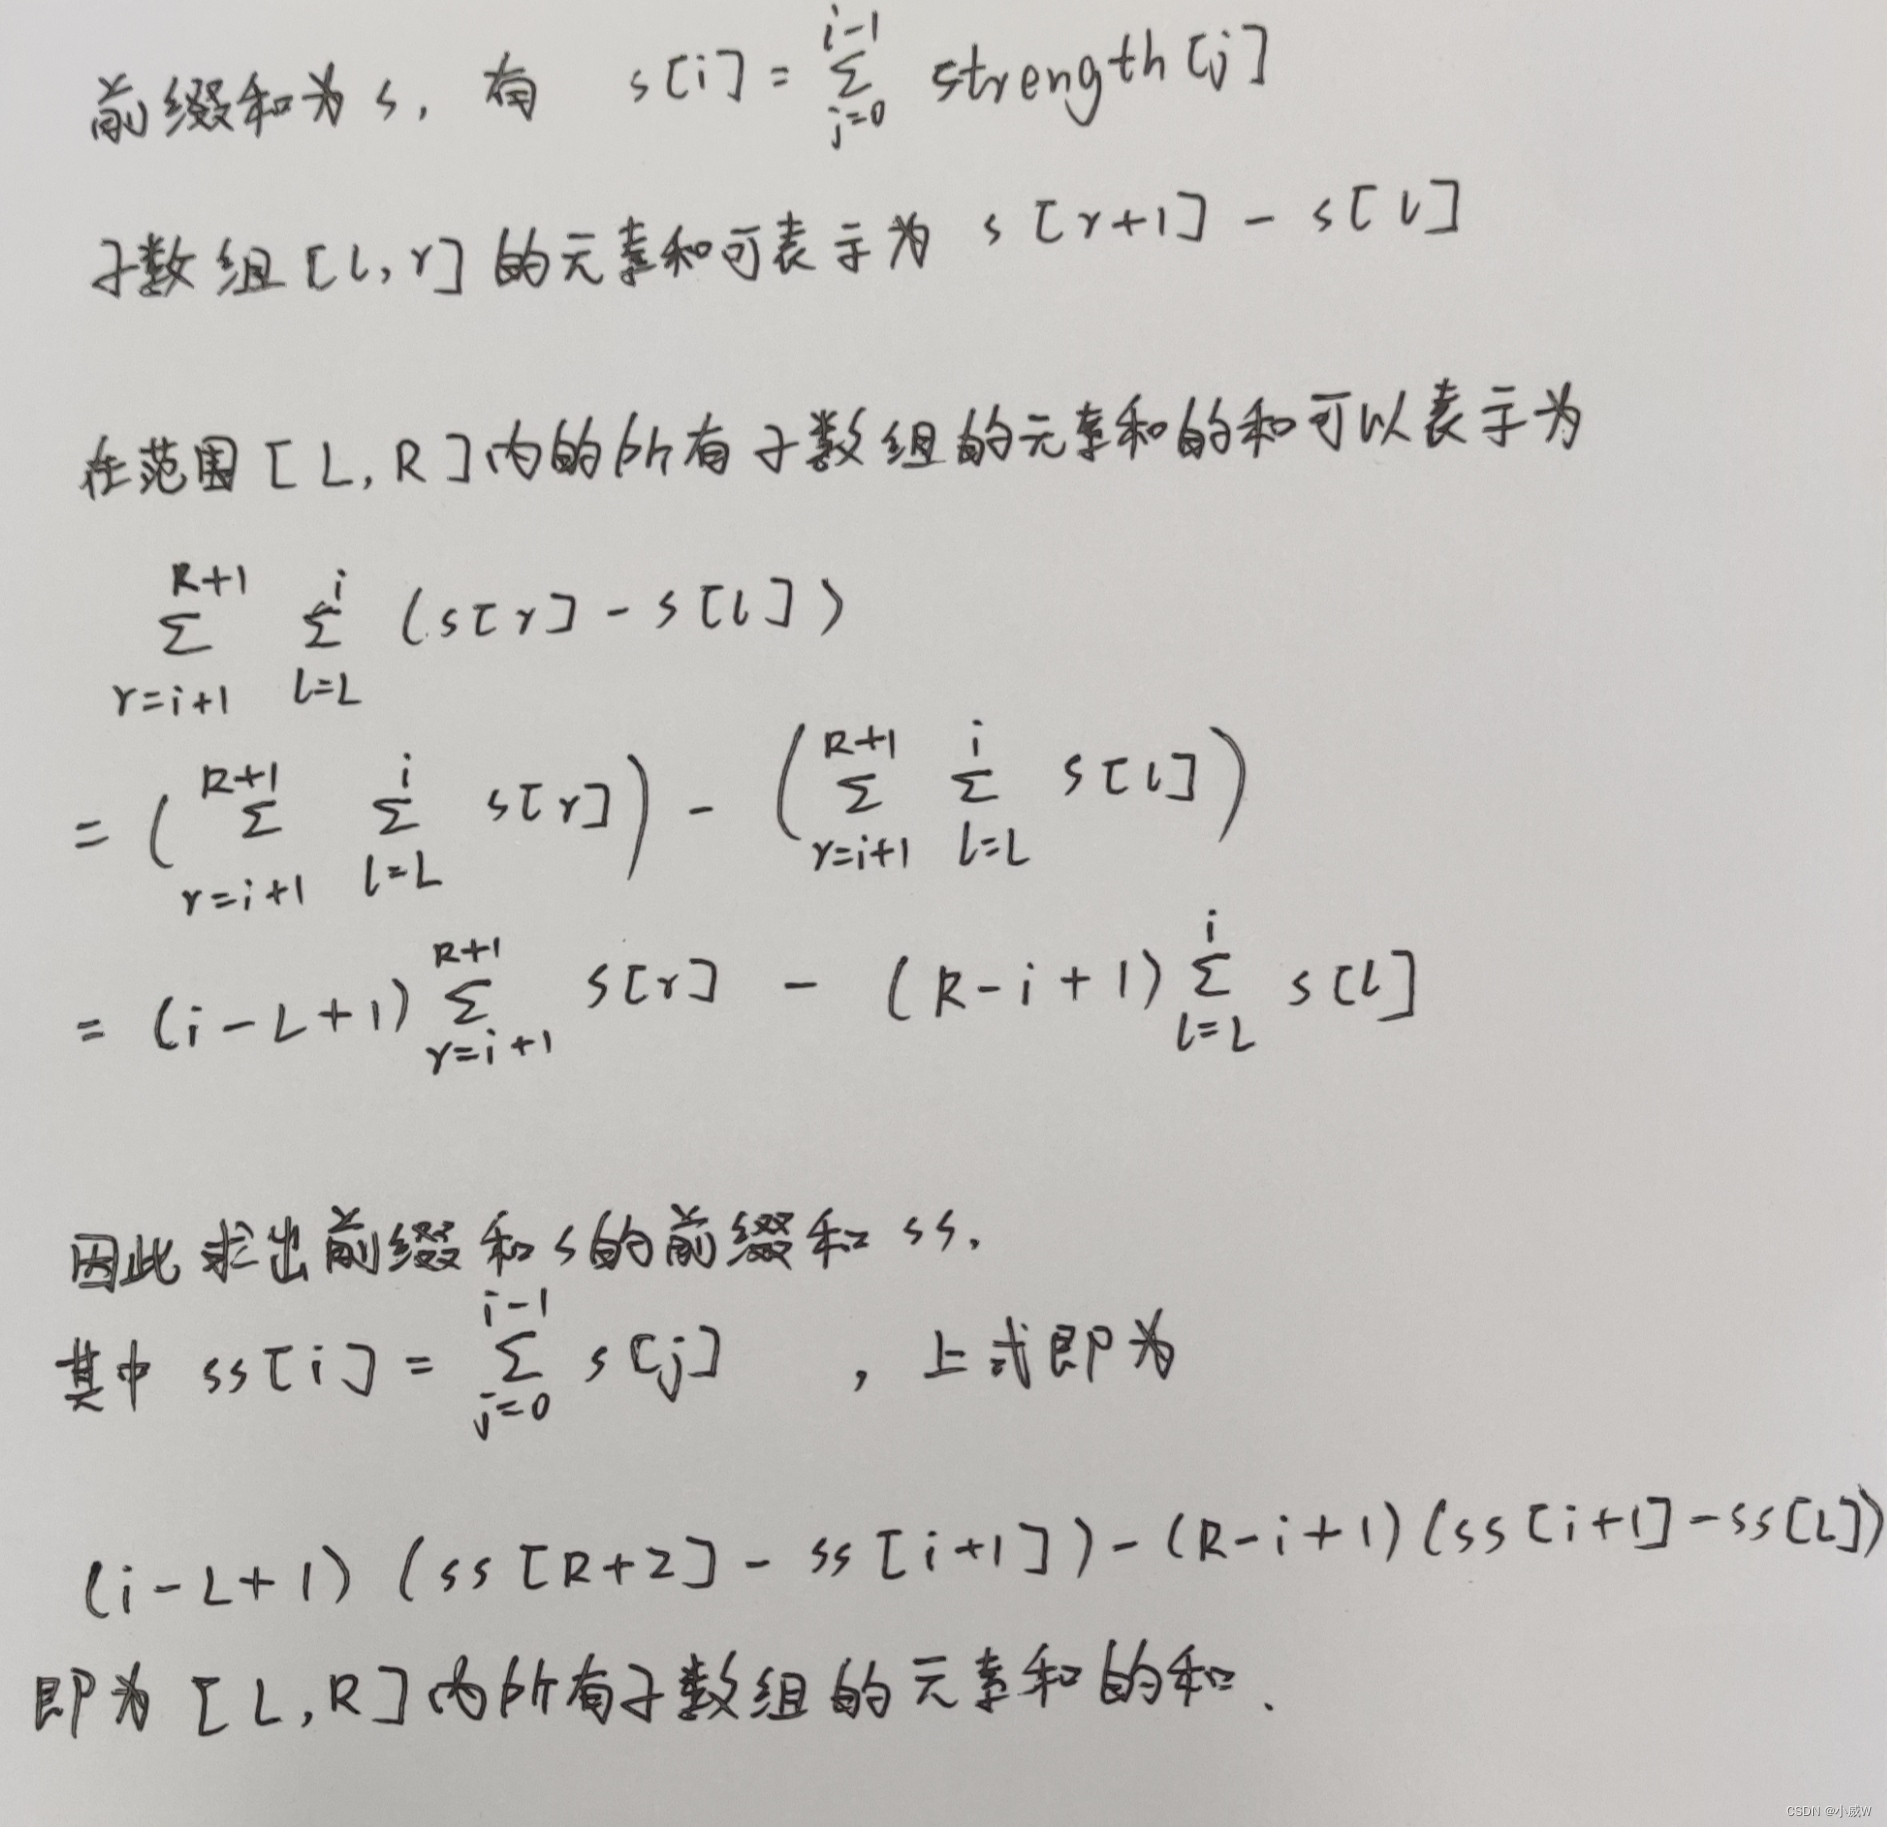 前缀和为 s, 有 s[i] = \sum_{j=0}^{i-1} strength[j]
子数组[l, r]的元素和可表示为 s[r+1] - s[l]
在范围[L, R]内的所有子数组的元素和的和可以表示为
\sum_{r=i+1}^{R+1} \sum_{l=L}^{i} (s[r] - s[l])
= (\sum_{r=i+1}^{R+1} \sum_{l=L}^{i} s[r]) - (\sum_{r=i+1}^{R+1} \sum_{l=L}^{i} s[l])
= (i-L+1) \sum_{r=i+1}^{R+1} s[r] - (R-i+1) \sum_{l=L}^{i} s[l]
因此求出前缀和s的前缀和 ss,
其中 ss[i] = \sum_{j=0}^{i-1} s[j] , 上式即为
(i-L+1) (ss[R+2] - ss[i+1]) - (R-i+1) (ss[i+1] - ss[L])
即为 [L, R]内所有子数组的元素和的和.
CSDN @小威W